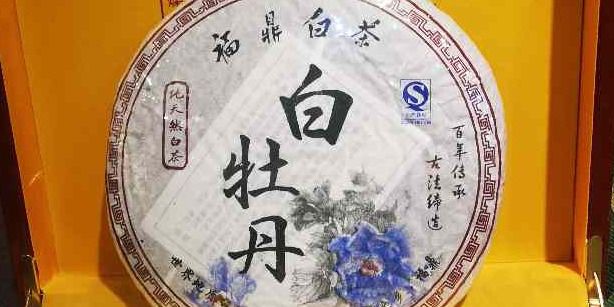 福鼎白茶
白牡丹
纯天然白茶
百年传承
古法缔造